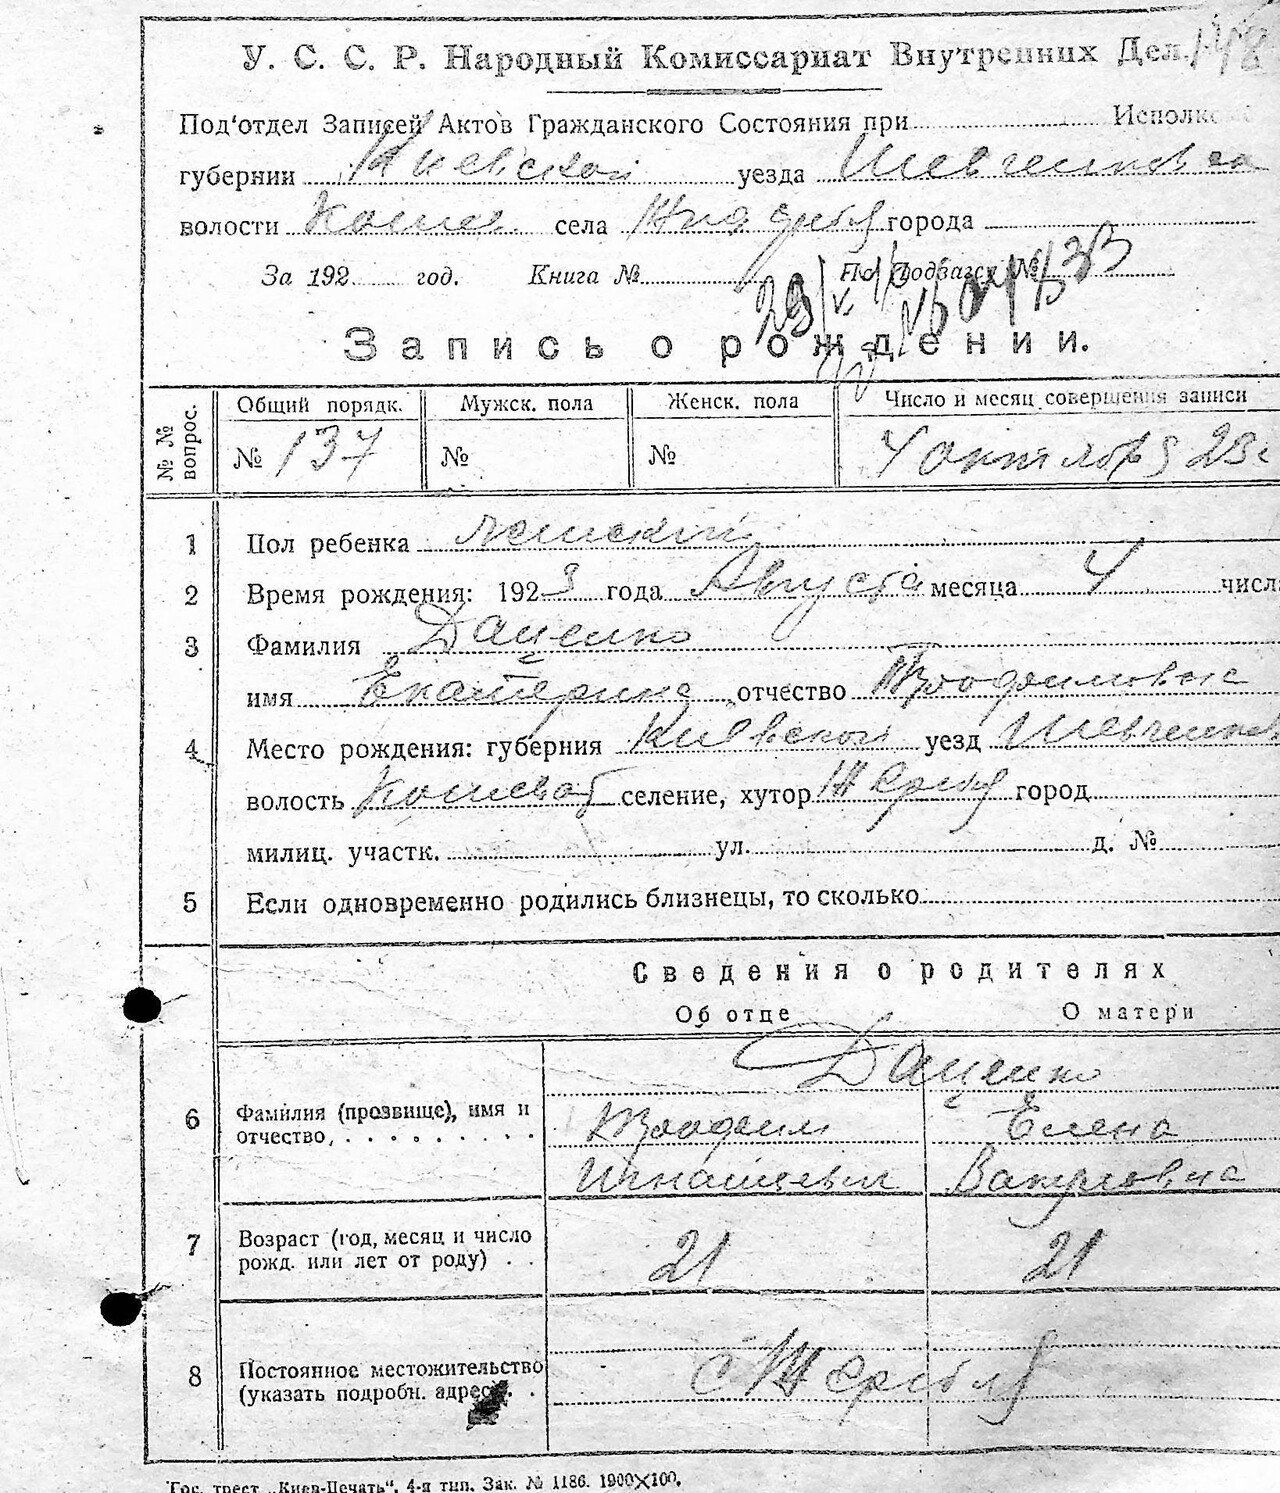 148
У. С. С. Р. Народный Комиссариат Внутренних Дел.
Под'отдел Записей Актов Гражданского Состояния при Исполко
губернии Киевской уезда Шевченковского
волости Кошев. села города
За 192 год. Книга № По Подзагсу №
Запись о рождении.
№ № вопрос. Общий порядк. Мужск. пола Женск. пола Число и месяц совершения записи
№ 137 № № 4 октября 23 г
1 Пол ребенка женский
2 Время рождения: 1923 года Августа месяца 4 числа
3 Фамилия Даценко
имя Екатерина отчество Трофимовна
4 Место рождения: губерния Киевской уезд Шевченков
волость Кошеват селение, хутор город
милиц. участк. ул. д. №
5 Если одновременно родились близнецы, то сколько
Сведения о родителях
Об отце О матери
Даценко
6 Фамилия (прозвище), имя и
отчество, Трофим Елена
Игнатиевич
7 Возраст (год, месяц и число
рожд. или лет от роду) 21 21
8 Постоянное местожительство
(указать подробн. адрес) с
Гос. трест „Киев-Печать“. 4-я тип. Зак. № 1186. 1900×100.